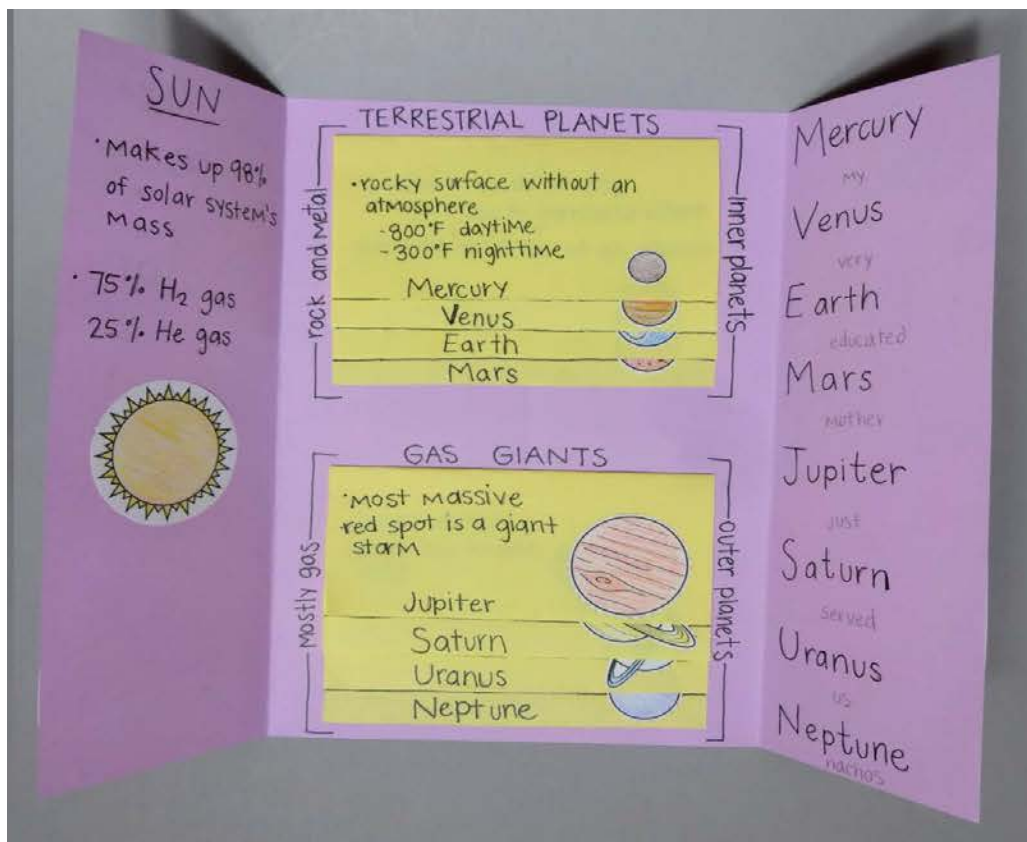 SUN
• Makes up 98%
of solar system's
mass
• 75% H₂ gas
25% He gas
TERRESTRIAL PLANETS
rock and metal
• rocky surface without an
atmosphere
- 800°F daytime
- 300°F nighttime
Mercury
Venus
Earth
Mars
inner planets
GAS GIANTS
mostly gas
• most massive
red spot is a giant
storm
Jupiter
Saturn
Uranus
Neptune
outer planets
Mercury
my
Venus
very
Earth
educated
Mars
mother
Jupiter
just
Saturn
served
Uranus
us
Neptune
nachos